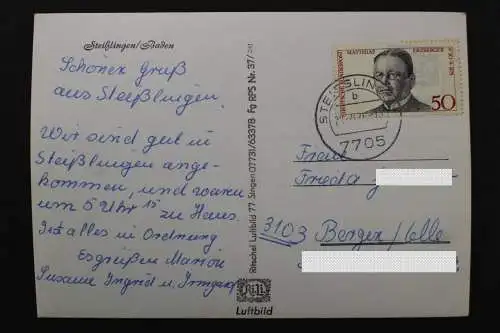 Steißlingen/Baden
Schöner Gruß
aus Steißlingen.
Wir sind gut in
Steißlingen ange-
kommen, und waren
um 5 Uhr 15 zu Haus.
Ist alles in Ordnung
Es grüßen Marion
Susanne Ingrid u. Irmgard
Ritschel Luftbild 77 Singen 07731/63378 · Fg RPS Nr. 37/
Luftbild
MATTHIAS ERZBERGER
50
STEISSLINGEN
b
7705
Frau
Frieda
3103 Bergen/Celle